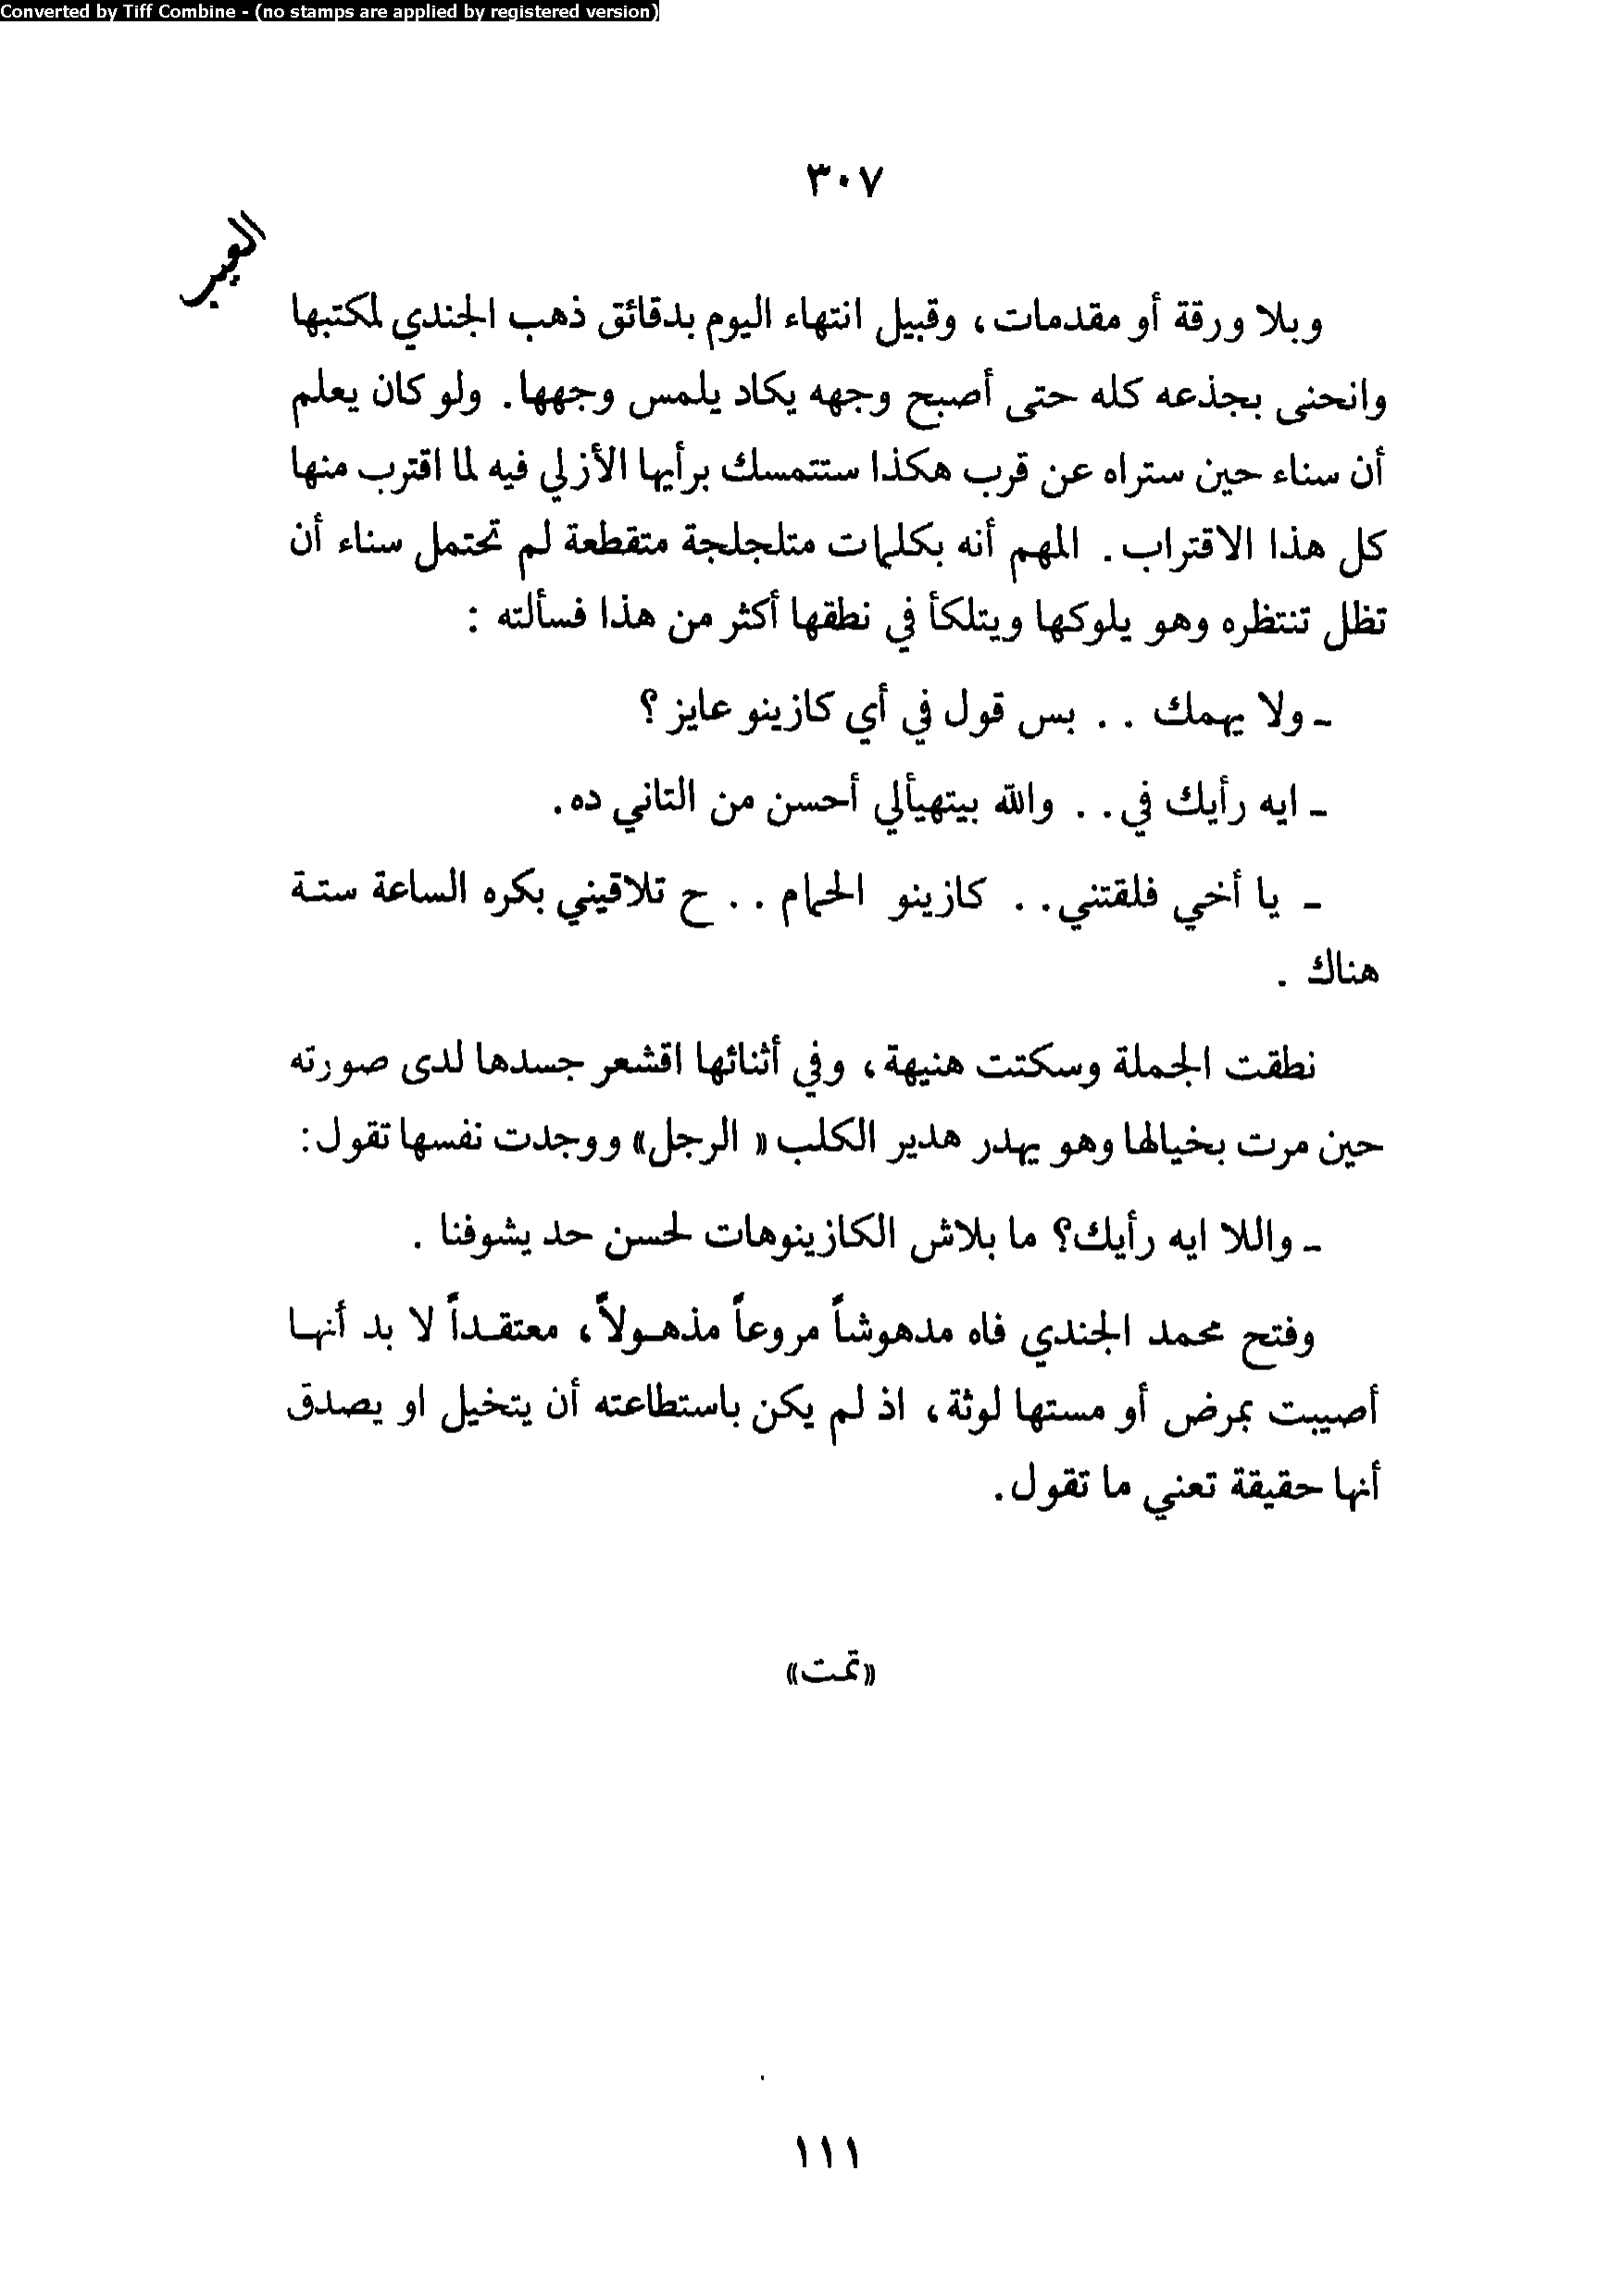 Converted by Tiff Combine - (no stamps are applied by registered version)
٣٠٧
العيب
وبلا ورقة أو مقدمات، وقبيل انتهاء اليوم بدقائق ذهب الجندي لمكتبها
وانحنى بجذعه كله حتى أصبح وجهه يكاد يلمس وجهها. ولو كان يعلم
أن سناء حين ستراه عن قرب هكذا ستتمسك برأيها الأزلي فيه لما اقترب منها
كل هذا الاقتراب. المهم أنه بكلمات متلجلجة متقطعة لم تحتمل سناء أن
تظل تنتظره وهو يلوكها ويتلكأ في نطقها أكثر من هذا فسألته :
ـ ولا يهمك . . بس قول في أي كازينو عايز ؟
ـ ايه رأيك في. . والله بيتهيألي أحسن من التاني ده.
ـ يا أخي فلقتني. . كازينو الحمام . . ح تلاقيني بكره الساعة ستة
هناك .
نطقت الجملة وسكتت هنيهة، وفي أثنائها اقشعر جسدها لدى صورته
حين مرت بخيالها وهو يهدر هدير الكلب « الرجل» ووجدت نفسها تقول:
ـ واللا ايه رأيك؟ ما بلاش الكازينوهات لحسن حد يشوفنا .
وفتح محمد الجندي فاه مدهوشاً مروعاً مذهولاً، معتقداً لا بد أنها
أصيبت بمرض أو مستها لوثة، اذ لم يكن باستطاعته أن يتخيل او يصدق
أنها حقيقة تعني ما تقول.
«تمت»
١١١